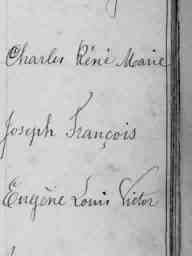 Charles Réné Marie
Joseph François
Eugène Louis Victor